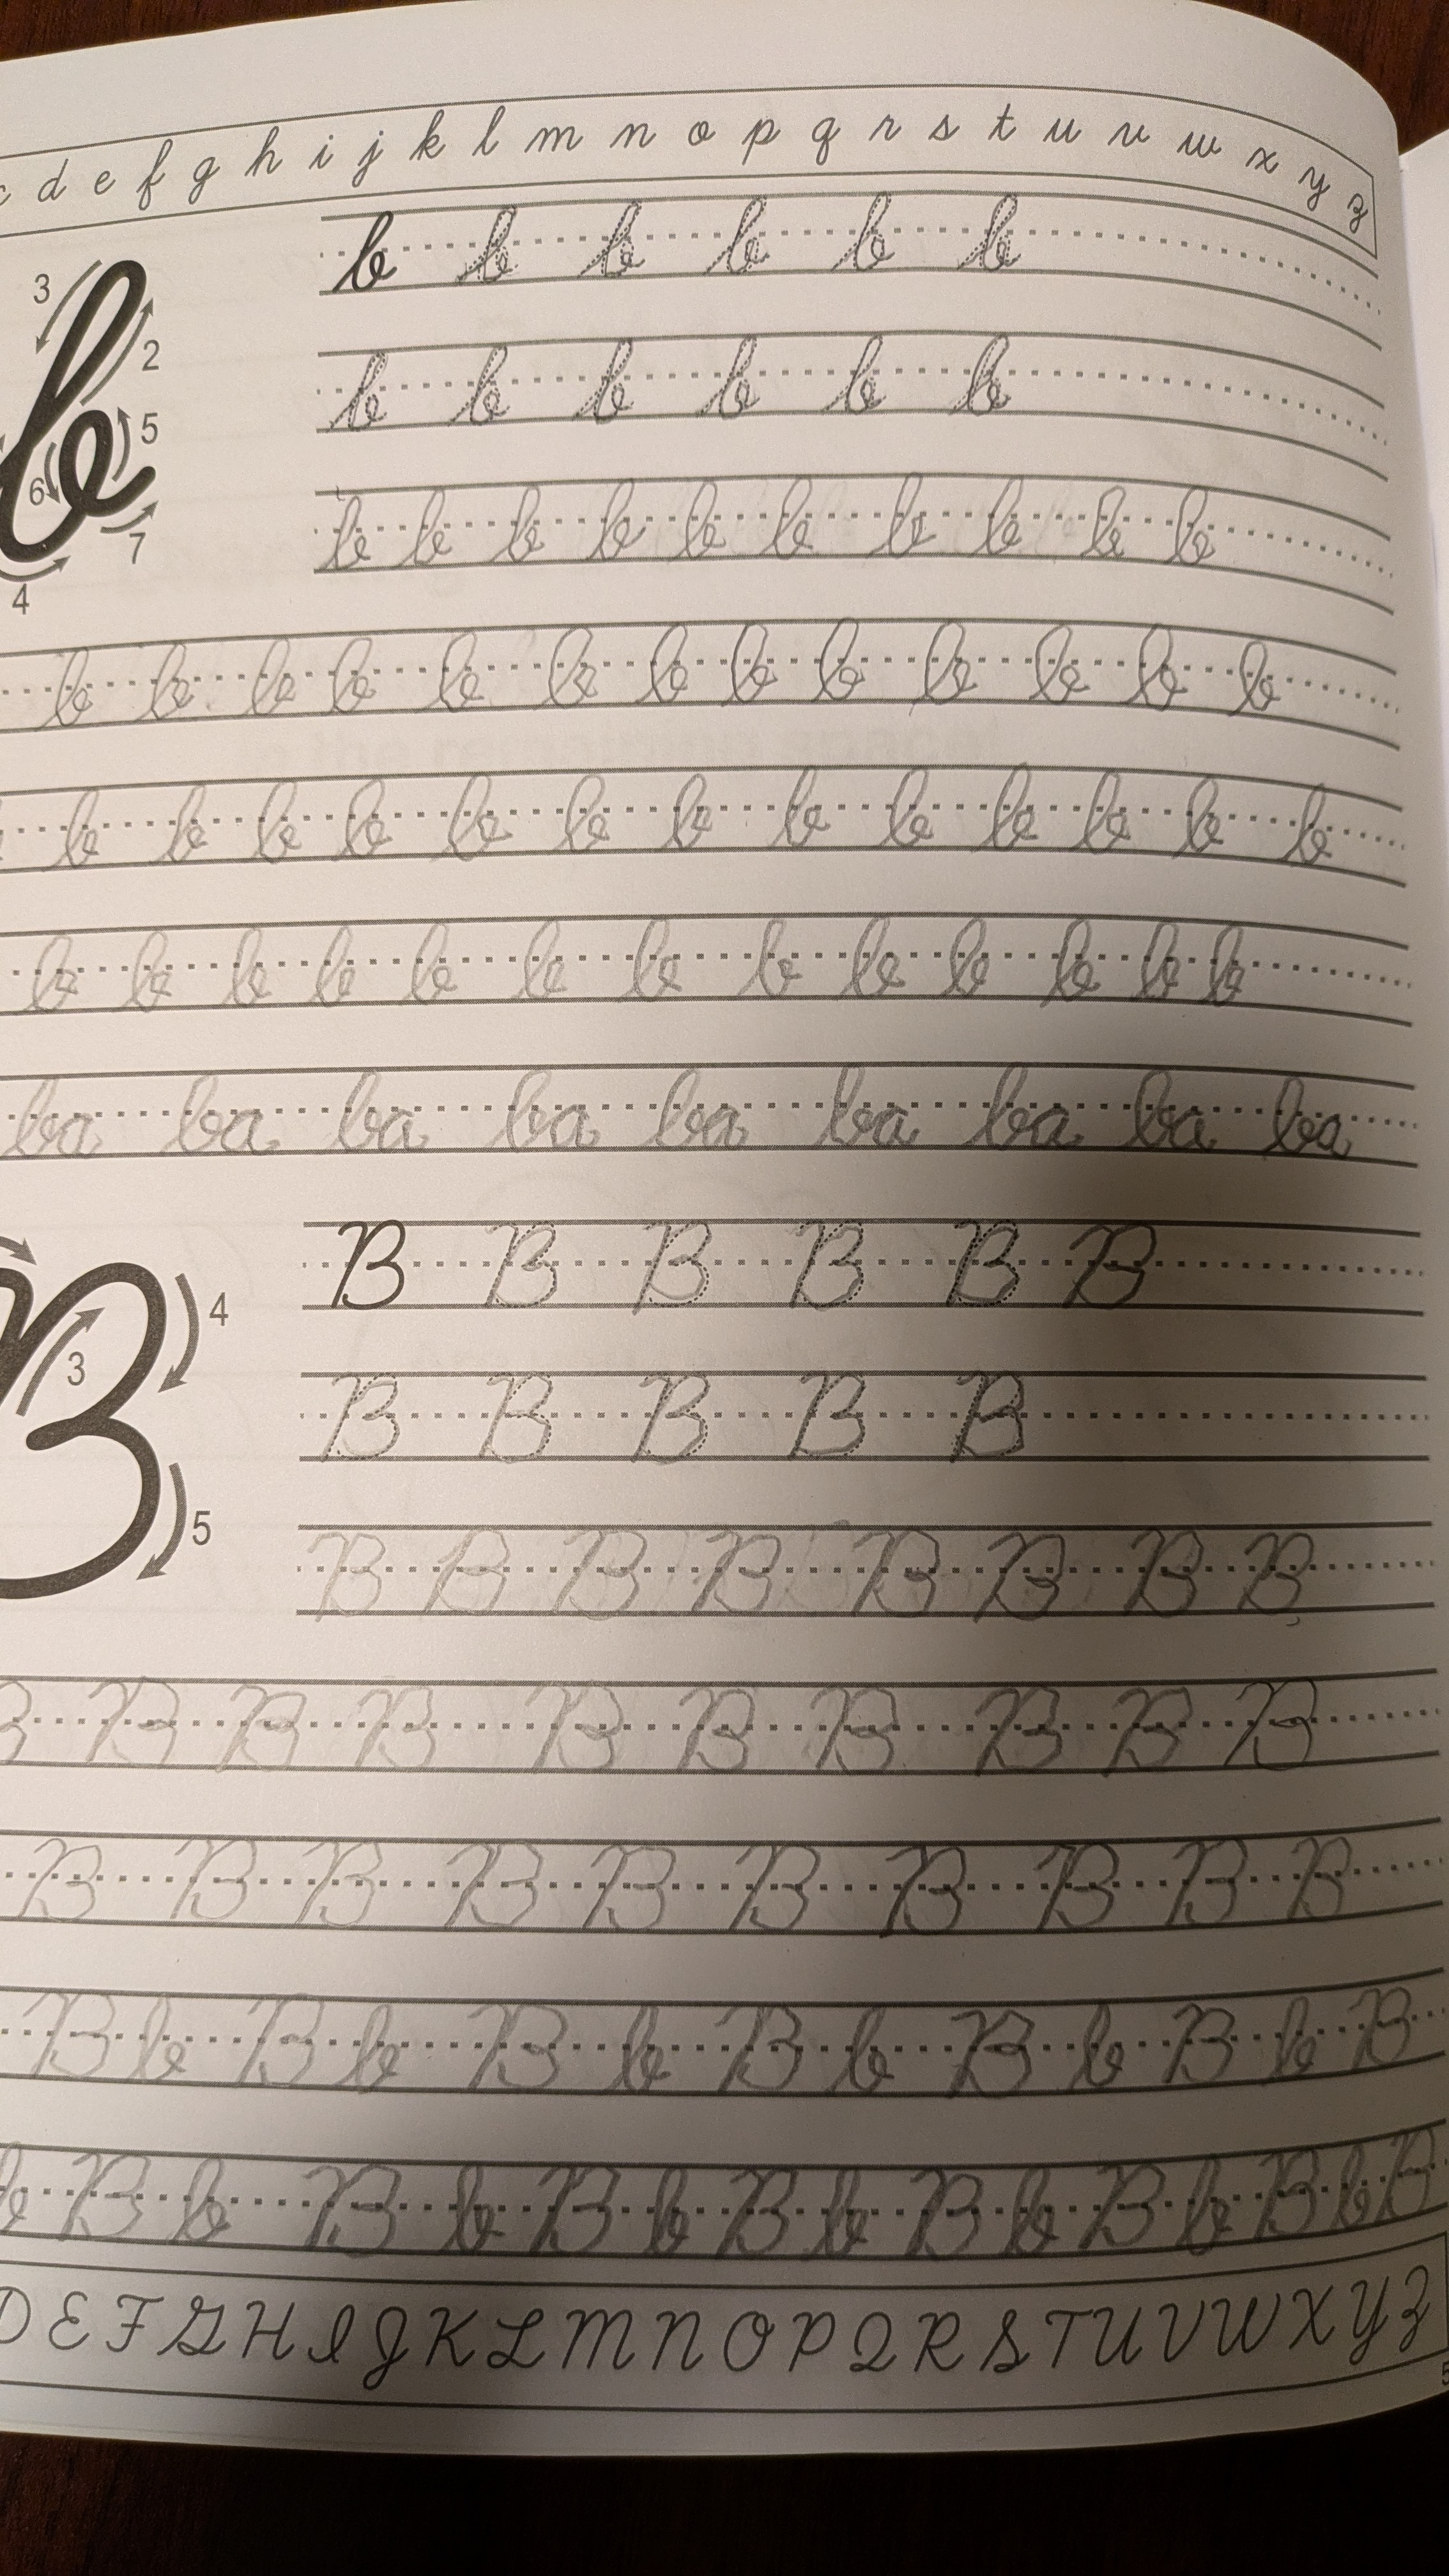 c d e f g h i j k l m n o p q r s t u v w x y z
b b b b b b
3
2
b b b b b b
5
6
b b b b b b b b b b
7
4
b b b b b b b b b b b b b
b b b b b b b b b b b b b
b b b b b b b b b b b b b
ba ba ba ba ba ba ba ba ba
B B B B B B
4
3
B B B B B
5
B B B B B B B B
B B B B B B B B B B
B B B B B B B B B B
B b B b B b B b B b B b B
b B b B b B b B b B b B b B b B
D E F G H I J K L M N O P Q R S T U V W X Y Z
5